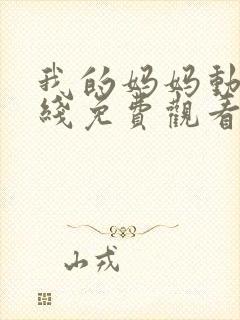 我的妈妈動
綫免費觀看
山戎